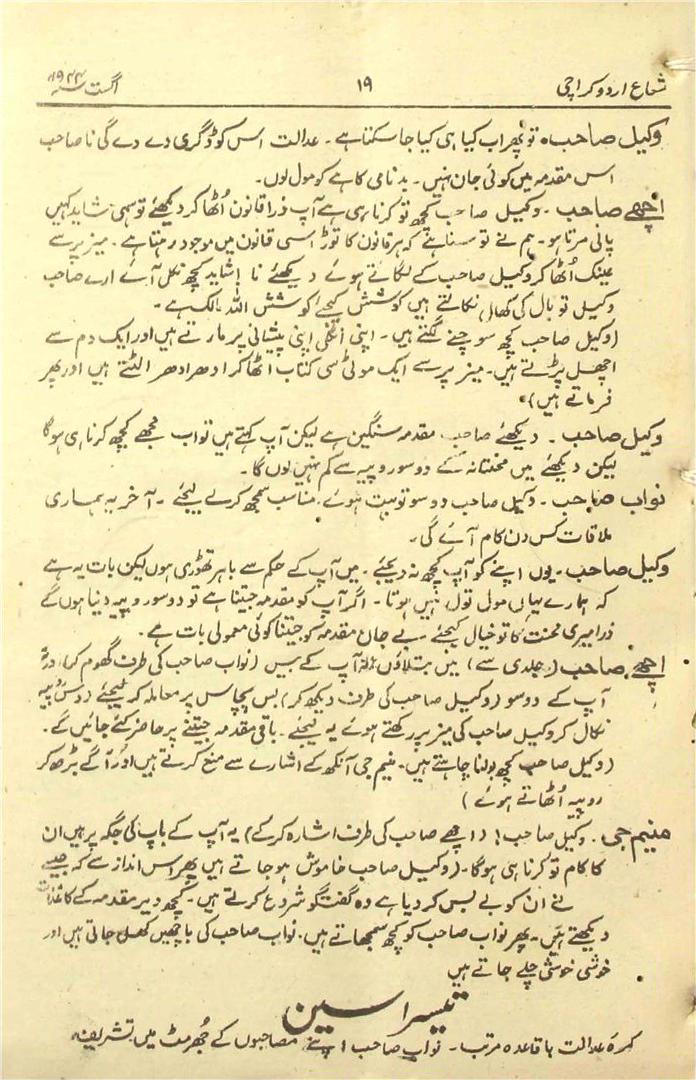 شعاع اردو کراچی ۱۹ اگست سنہ ۱۹۴۴ء
وکیل صاحب۔ تو پھر اب کیا ہی کیا جا سکتا ہے۔ عدالت اس کو ڈگری دے دے گی نا صاحب
اس مقدمہ میں کوئی جان نہیں۔ بدنامی کاہے کو مول لوں۔
اچھے صاحب۔ وکیل صاحب کچھ تو کرنا ہی ہے آپ ذرا قانون اُٹھا کر دیکھئے تو سہی شاید کہیں
پانی مرتا ہو۔ ہم نے تو سنا ہے کہ ہر قانون کا توڑ اسی قانون میں موجود رہتا ہے۔ میز پر سے
عینک اُٹھا کر وکیل صاحب کے لگاتے ہوئے دیکھئے نا! شاید کچھ نکل آئے ارے صاحب
وکیل تو بال کی کھال نکالتے ہیں کوشش کیجئے کوشش اللہ مالک ہے۔
(وکیل صاحب کچھ سوچنے لگتے ہیں۔ اپنی انگلی اپنی پیشانی پر مارتے ہیں اور ایک دم سے
اچھل پڑتے ہیں۔ میز پر سے ایک موٹی سی کتاب اٹھا کر ادھر ادھر الٹتے ہیں اور پھر
فرماتے ہیں)
وکیل صاحب۔ دیکھئے صاحب مقدمہ سنگین ہے لیکن آپ کہتے ہیں تو اب مجھے کچھ کرنا ہی ہوگا
لیکن دیکھئے میں محنتانہ کے دو سو روپیہ سے کم نہیں لوں گا۔
نواب صاحب۔ وکیل صاحب دو سو تو بہت ہوئے۔ مناسب سمجھ کر لے لیجئے۔ آخر یہ ہماری
ملاقات کس دن کام آئے گی۔
وکیل صاحب۔ یوں اپنے کو آپ کچھ نہ دیجئے۔ میں آپ کے حکم سے باہر تھوڑی ہوں لیکن بات یہ ہے
کہ ہمارے یہاں مول تول نہیں ہوتا۔ اگر آپ کو مقدمہ جیتنا ہے تو دو سو روپیہ دینا ہوں گے
ذرا میری محنت کا تو خیال کیجئے۔ بے جان مقدمہ کو جیتنا کوئی معمولی بات ہے۔
اچھے صاحب (جلدی سے) میں بتلاؤں نہ آپ کے بیس (نواب صاحب کی طرف گھوم کر) نہ
آپ کے دو سو (وکیل صاحب کی طرف دیکھ کر) بس پچاس پر معاملہ کر لیجئے (دس روپیہ
نکال کر وکیل صاحب کی میز پر رکھتے ہوئے یہ لیجئے۔ باقی مقدمہ جیتنے پر حاضر کئے جائیں گے۔
(وکیل صاحب کچھ بولنا چاہتے ہیں۔ منیم جی آنکھ کے اشارے سے منع کرتے ہیں اور آگے بڑھ کر
روپیہ اُٹھاتے ہوئے)
منیم جی۔ وکیل صاحب! (اچھے صاحب کی طرف اشارہ کر کے) یہ آپ کے باپ کی جگہ پر ہیں ان
کا کام تو کرنا ہی ہوگا۔ (وکیل صاحب خاموش ہو جاتے ہیں پھر اس انداز سے کہ جیسے
نے ان کو بے بس کر دیا ہے وہ گفتگو شروع کرتے ہیں۔ کچھ دیر مقدمہ کے کاغذات
دیکھتے ہیں۔ پھر نواب صاحب کو کچھ سمجھاتے ہیں۔ نواب صاحب کی باچھیں کھل جاتی ہیں اور
خوشی خوشی چلے جاتے ہیں
تیسرا سین
کمرۂ عدالت با قاعدہ مرتب۔ نواب صاحب اپنے مصاحبوں کے جُھرمٹ میں تشریف